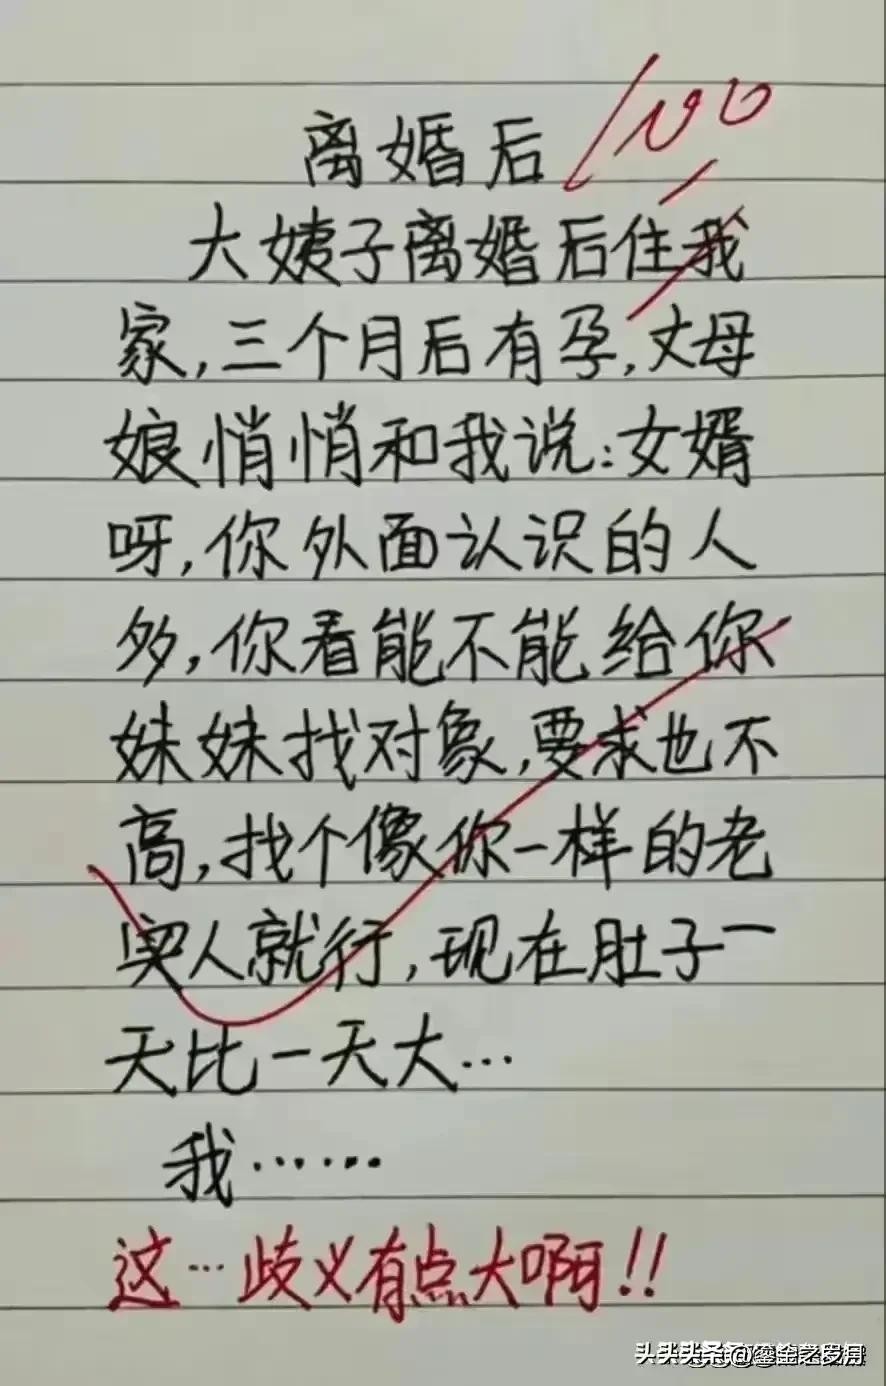 离婚后
100
大姨子离婚后住我
家,三个月后有孕,丈母
娘悄悄和我说:女婿
呀,你外面认识的人
多,你看能不能给你
妹妹找对象,要求也不
高,找个像你一样的老
实人就行,现在肚子一
天比一天大…
我……
这…歧义有点大啊!!
头条 @鎏金之岁月